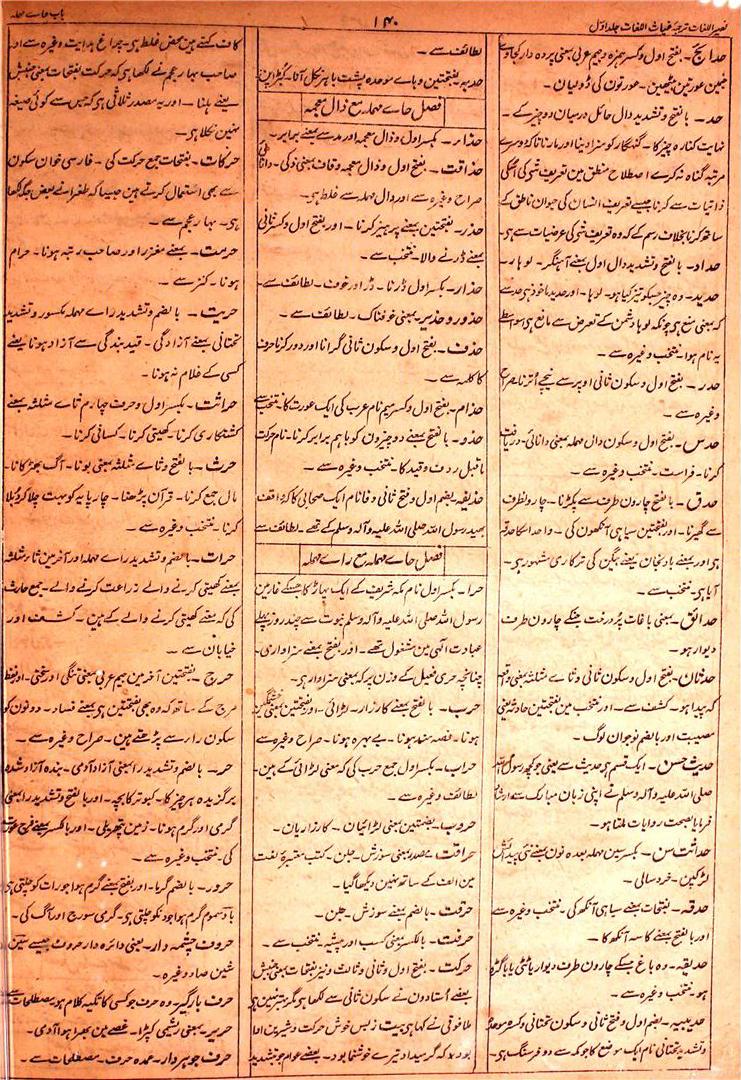 نصیر اللغات ترجمہ غیاث اللغات جلد اول
۱۴۰
باب حاے مہملہ
حدائج۔ بفتح اول وکسر ہمزہ وجیم عربی بمعنی پردہ دار کجاوے
جنمین عورتین بیٹھین۔ عورتون کی ڈولیان۔
حد۔ بالفتح وتشدید دال حائل درمیان دو چیز کے۔
نہایت کنارہ چیز کا۔ گنہگار کو سزا دینا اور مارنا تاکہ دوسرے
مرتبہ گناہ نہ کرے اصطلاح منطق مین تعریف شی کی اسکی
ذاتیات سے کرنا جیسے تعریف انسان کی حیوان ناطق کے
ساتھ کرنا بخلاف رسم کے کہ وہ تعریف شی کی عرضیات سے ہی۔
حداد۔ بالفتح وتشدید دال اول بمعنے آہنگر۔ لوہار۔
حدید۔ وہ چیز جسکو تیز کیا ہو۔ لوہا۔ اور حدید ماخوذ ہی حد سے
کہ بمعنی منع ہی چونکہ لوہا دشمن کے تعرض سے مانع ہی سو اسطے
یہ نام ہوا۔ منتخب وغیرہ سے۔
حدر۔ بفتح اول وسکون ثانی اوپر سے نیچے اترنا۔ صراح
وغیرہ سے۔
حدس۔ بفتح اول وسکون دال مہملہ بمعنی دانائی۔ دریافت
کرنا۔ فراست۔ منتخب وغیرہ سے۔
حدق۔ بالفتح چارون طرف سے پکڑنا۔ چارون طرف
سے گھیرنا۔ اور بفتحتین سیاہی آنکھون کی۔ واحد اسکا حدقہ
ہی اور بمعنے بادنجان یعنے بیگن کی ترکاری مشہور ہی۔
آیا ہی۔ منتخب سے۔
حدائق۔ بمعنی باغات پر درخت جنکے چارون طرف
دیوار ہو۔
حدثان۔ بفتح اول وسکون ثانی وثاے مثلثہ بمعنی
کہ پیدا ہو۔ کشف سے۔ اور منتخب مین بفتحتین حادثہ یعنی
مصیبت اور بالضم نوجوان لوگ۔
حدیث حسن۔ ایک قسم ہی حدیث سے یعنی جو کچھ رسول اللہ
صلی اللہ علیہ وآلہ وسلم نے اپنی زبان مبارک سے ارشاد
فرمایا بصحت روایات ملتا ہو۔
حداثت سن۔ بکسر سین مہملہ بعدہ نون بمعنے نئی پیدائش
لڑکپن۔ خرد سالی۔
حدقہ۔ بفتحات بمعنے سیاہی آنکھ کی۔ منتخب وغیرہ سے
اور بالفتح بمعنے کاسہ آنکھ کا۔
حدیقہ۔ وہ باغ جسکے چارون طرف دیوار یا ٹٹی یا باڑہ
ہو۔ منتخب وغیرہ سے۔
حدیبیہ۔ بضم اول وفتح ثانی وسکون تحتانی وکسر موحدہ
وتشدید تحتانی نام ایک موضع کا جو مکہ سے دو فرسنگ ہی۔
لطائف سے۔
حدبہ۔ بفتحتین وباے موحدہ پشت باہر نکل آنا۔ کبڑاپن
فصل حاے مہملہ مع ذال معجمہ
حذاء۔ بکسر اول وذال معجمہ اور مد سے بمعنے برابر۔
حذاقت۔ بفتح اول وذال معجمہ وقاف بمعنی ذکی۔ دانائی
صراح وغیرہ سے اور دال مہملہ سے غلط ہی۔
حذر۔ بفتحتین بمعنے پرہیز کرنا۔ اور بفتح اول وکسر ثانی
بمعنے ڈرنے والا۔ منتخب سے۔
حذار۔ بکسر اول ڈرنا۔ ڈر اور خوف۔ لطائف سے۔
حذور وحذیر۔ بمعنی خوفناک۔ لطائف سے۔
حذف۔ بفتح اول وسکون ثانی گرانا اور دور کرنا حرف
کا کلمہ سے۔
حذام۔ بفتح اول وکسر میم نام عرب کی ایک عورت کا۔ منتخب سے
حذو۔ بالفتح بمعنے دو چیزون کو باہم برابر کرنا۔ نام حرکت
ماقبل ردف وقید کا۔ منتخب وغیرہ سے۔
حذیفہ۔ بضم اول وفتح ثانی وفا نام ایک صحابی کا کہ واقف
بھید رسول اللہ صلی اللہ علیہ وآلہ وسلم کے تھے۔ لطائف سے
فصل حاے مہملہ مع راے مہملہ
حرا۔ بکسر اول نام مکہ شریف کے ایک پہاڑ کا جسکے غار مین
رسول اللہ صلی اللہ علیہ وآلہ وسلم نبوت سے چند روز پہلے
عبادت الٰہی مین مشغول تھے۔ اور بفتح بمعنے سزاواری۔
چنانچہ حری فعیل کے وزن پر کہ بمعنی سزاوار ہی۔
حرب۔ بالفتح بمعنے کارزار۔ لڑائی۔ اور بفتحتین بمعنے خشمگین
ہونا۔ قصہ مند ہونا۔ بے بہرہ ہونا۔ صراح وغیرہ سے
حراب۔ بکسر اول جمع حرب کی کہ بمعنی لڑائی کے ہین۔
لطائف وغیرہ سے۔
حروب۔ بضمتین بمعنی لڑائیان۔ کارزاریان۔
حراقت۔ مصدر بمعنی سوزش۔ جلن۔ کتب معتبرہ لغت
مین الف کے ساتھ نہین دیکھا گیا۔
حرقت۔ بالضم بمعنے سوزش۔ جلن۔
حرفت۔ بالکسر بمعنی کسب اور پیشہ۔ منتخب سے۔
حرکت۔ بفتح اول وثانی وثالث ونیز بفتحات بمعنی جنبش
بعضے اُستادون نے سکون ثانی سے لکھا ہی مگر بہتر نہین ہی
طاؤقی نے کہا ہی بیت زبس خوش حرکت وشیرین ادا
بود۔ کہ گر سیداد تیرے خوشنما بود۔ بعضے عوام جو بتشدید
کاف کہتے ہین محض غلط ہی۔ چراغ ہدایت وغیرہ سے اور
صاحب بہار عجم نے لکھا ہی کہ حرکت بفتحات بمعنی جنبش
یعنے ہلنا۔ اور یہ مصدر ثلاثی ہی کہ جس سے کوئی صیغہ
نہین نکلا ہی۔
حرکات۔ بفتحات جمع حرکت کی۔ فارسی خوان سکون
سے بھی استعمال کرتے ہین جیسا کہ ظہرا نے بعض جگہ لکھا
ہی۔ بہار عجم سے۔
حرمت۔ بمعنے مغز اور صاحب رتبہ ہونا۔ حرام
ہونا۔ کنز سے۔
حریت۔ بالضم وتشدید راے مہملہ مکسور وتشدید
تحتانی بمعنے آزادگی۔ قید بندگی سے آزاد ہونا یعنے
کسی کے غلام نہ ہونا۔
حراثت۔ بکسر اول وحرف چہارم ثاے مثلثہ بمعنے
کشتکاری کرنا۔ کھیتی کرنا۔ کسانی کرنا۔
حرث۔ بالفتح وثاے مثلثہ بمعنی بونا۔ آگ بھڑکانا۔
مال جمع کرنا۔ قرآن پڑھنا۔ چارپایہ کو بہت چلا کر دبلا
کرنا۔ منتخب وغیرہ سے۔
حراث۔ بالضم وتشدید راے مہملہ اور آخر مین ثاے مثلثہ
بمعنے کھیتی کرنے والے زراعت کرنے والے۔ جمع حارث
کی کہ بمعنے کھیتی کرنے والے کے ہین۔ کشف اور
خیابان سے۔
حرج۔ بفتحتین آخر مین جیم عربی بمعنی تنگی اور سختی۔ اور لفظ
مرج کے ساتھ کہ وہ بھی بفتحتین ہی بمعنے فساد۔ دونون کو
سکون را سے پڑھتے ہین۔ صراح وغیرہ سے۔
حر۔ بالضم وتشدید را بمعنی آزاد آدمی۔ بندہ آزاد شدہ
برگزیدہ ہر چیز کا۔ کبوتر کا بچہ۔ اور بالفتح وتشدید را بمعنی
گرمی اور گرم ہونا۔ زمین پتھریلی۔ اور بالکسر بمعنے فرج عورت
کی۔ منتخب وغیرہ سے۔
حرور۔ بالضم گرما۔ اور بفتح بمعنے گرم ہوا جو رات کو چلتی ہی
بادسموم گرم ہوا جو دن کو چلتی ہی۔ گرمی سورج اور آگ کی۔
حروف چشمہ دار۔ یعنی دائرہ دار حروف جیسے سین
شین صاد وغیرہ۔
حرف بارگیر۔ وہ حرف جو کسی کا تکیہ کلام ہو۔ مصطلحات سے
حریر۔ بمعنی ریشمی کپڑا۔ غصے مین بھرا ہوا آدمی۔
حرف جوہردار۔ عمدہ حرف۔ مصطلحات سے۔